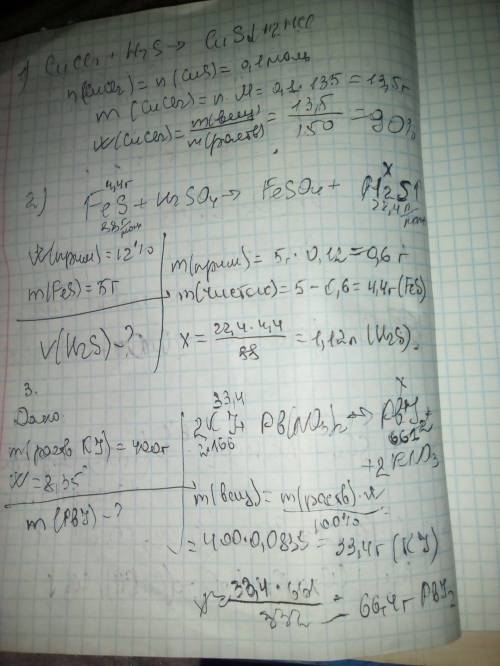 1) CuCl₂ + H₂S → CuS↓ + 2HCl
n(CuCl₂) = n(CuS) = 0,1 моль
m (CuCl₂) = n · M = 0,1 · 135 = 13,5г
w(CuCl₂) = m(вещ)/m(раств) = 13,5/150 = 90%
2)
4,4г x
FeS + H₂SO₄ → FeSO₄ + H₂S↑
88г/моль 22,4
w(прим) = 12%
m(FeS) = 5г
V(H₂S) - ?
m(прим) = 5г · 0,12 = 0,6 г
m(чистого) = 5 - 0,6 = 4,4г (FeS)
x = 22,4 · 4,4/88 = 1,12л (H₂S).
3.
Дано
m(раств KJ) = 400г
w = 8,35
m (PbJ) - ?
33,4 x
2KJ + Pb(NO₃)₂ → PbJ₂ +
2·166 661
+ 2KNO₃
m(вещ) = m(раств) · w/100%
= 400 · 0,0835 = 33,4г (KJ)
x = 33,4 · 661/332 = 66,4г PbJ₂